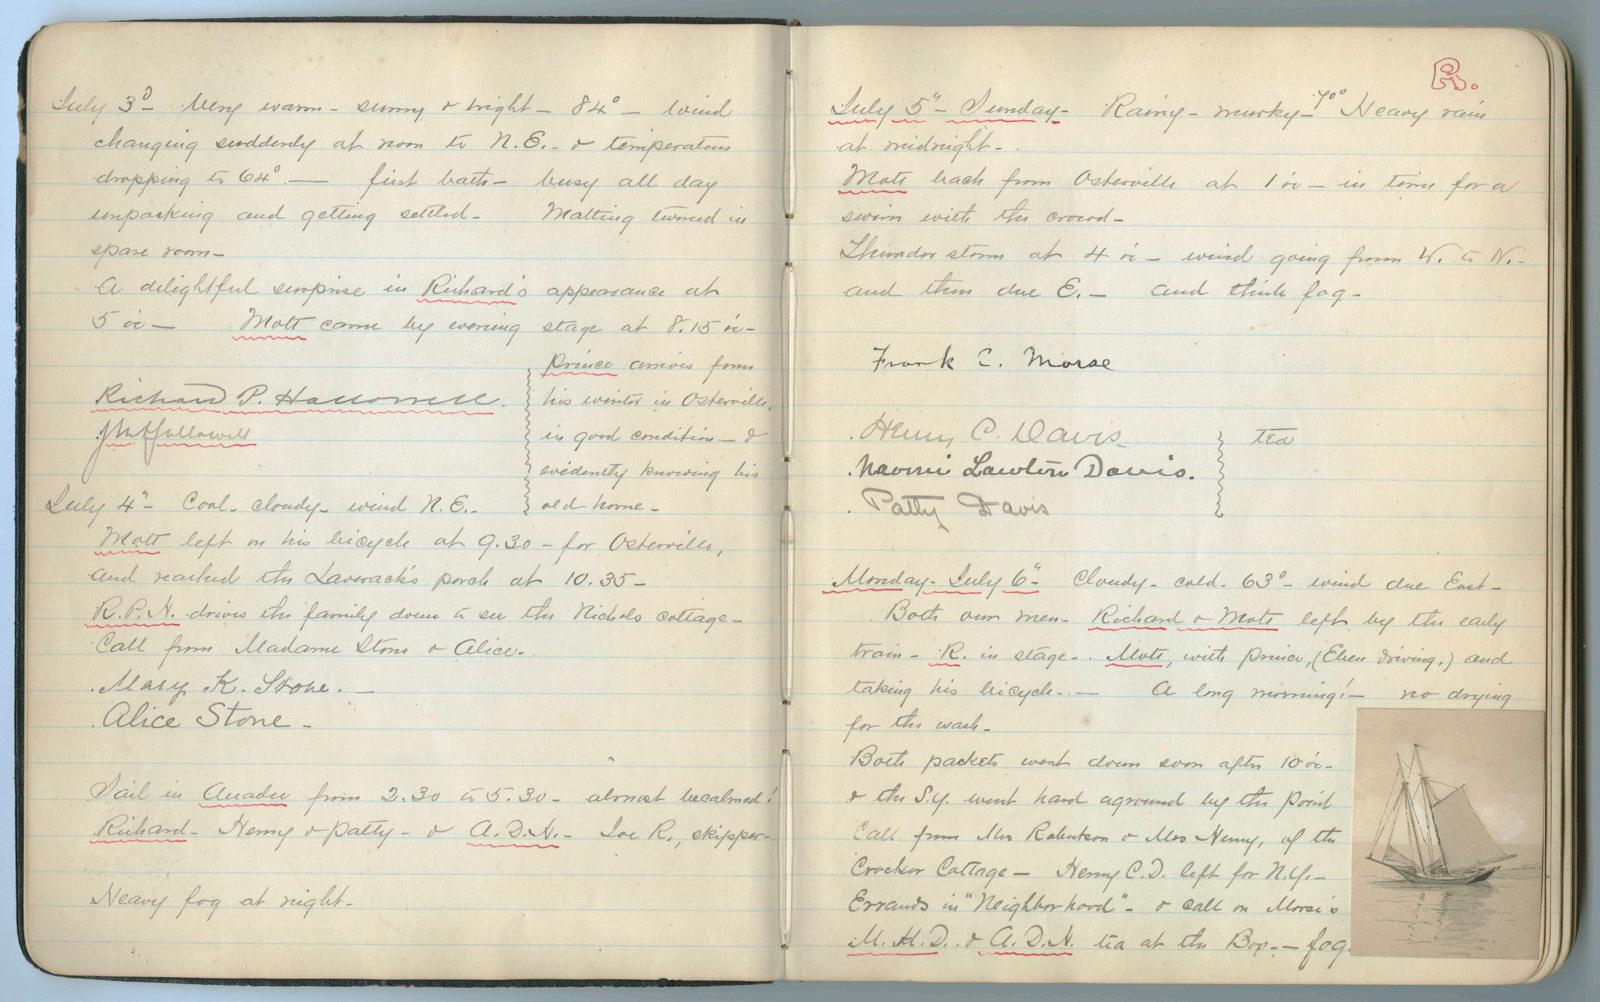 July 3d Very warm - sunny & bright - 84° - wind
changing suddenly at noon to N.E. - & temperature
dropping to 64°. — first bath - busy all day
unpacking and getting settled - Matting turned in
spare room -
A delightful surprise in Richard's appearance at
5 oc — Mott came by evening stage at 8.15 oc -
Prince arrives from
his winter in Osterville,
in good condition - &
evidently knowing his
old home -
Richard P. Hallowell.
J M Hallowell
July 4" - Cool - cloudy - wind N.E. -
Mott left on his bicycle at 9.30 - for Osterville,
and reached the Laverack's porch at 10.35 -
R.P.H. drives the family down to see the Nichols cottage -
Call from Madame Stone & Alice -
Mary K. Stone. —
Alice Stone -
Sail in from 2.30 to 5.30 - almost becalmed!
Richard - Henry & Patty - & A.D.H. - Joe R., skipper -
Heavy fog at night -
R.
July 5" - Sunday - Rainy - murky - 70° Heavy rain
at midnight -
Mott back from Osterville at 1 oc - in time for a
swim with the crowd -
Thunder storm at 4 oc - wind going from W. to N. -
and then due E. - and thick fog -
Frank C. Morse
Henry C. Davis
Naomi Lawton Davis.
Patty Davis
tea
Monday - July 6" Cloudy - cold - 63° - wind due East -
Both our men - Richard & Mott left by the early
train - R. in stage - Mott, with Prince, (Eben driving.) and
taking his bicycle - — A long morning! - no drying
for the wash -
Both packets went down soon after 10 oc -
& the S.Y. went hard aground by the Point
Call from Mrs Robertson & Mrs Henry, of the
Crocker Cottage — Henry C.D. left for N.Y. -
Errands in "Neighborhood" - & call on Morse's
M.H.D. & A.D.H. tea at the - fog.